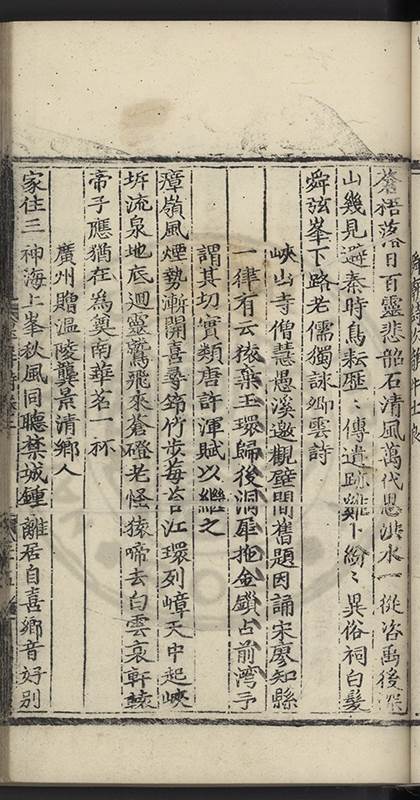 蒼梧落日百靈悲韶石清風萬代思洪水一從咨禹後深
山幾見避秦時鳥耘歷〻傳遺跡雞卜紛〻異俗祠白髮
舜弦峯下路老儒獨詠卿雲詩
峽山寺僧慧愚溪邀觀壁間舊題因誦宋廖知縣
一律有云猿棄玉環歸後洞犀拖金鎖占前灣予
謂其切實類唐許渾賦以繼之
瘴嶺風煙勢漸開喜尋筇竹步莓苔江環列嶂天中起峽
坼流泉地底迴靈鷲飛來蒼磴老怪猿啼去白雲哀軒轅
帝子應猶在為奠南華茗一杯
廣州贈溫陵龔景清鄉人
家住三神海上峯秋風同聽禁城鍾離居自喜鄉音好別